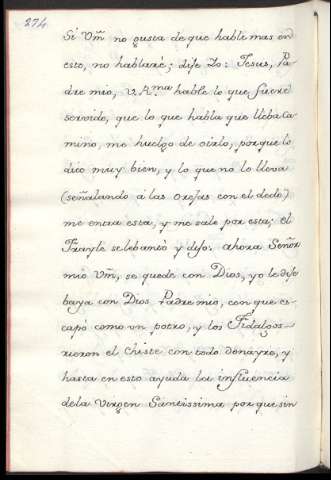 274
Si Vm̃ no gusta de que hable mas en
esto, no hablaré; dije Yo: Jesus, Pa-
dre mio, V. A.ma hable lo que fuere
servido, que lo que habla que lleba ca-
mino, me huelgo de oirlo, porque lo
dice muy bien, y lo que no lo lleva
(señalando á las orejas con el dedo)
me entra esta, y me sale por esta; el
Frayle se lebantó y dijo: ahora Señor
mio Vm̃, se quede con Dios, yo le dije
baya con Dios Padre mio, con que es-
capó como un potro, y los Fidalgos
rieron el chiste con todo donayre, y
hasta en esto ayuda la influencia
de la Virgen Santissima por que sin